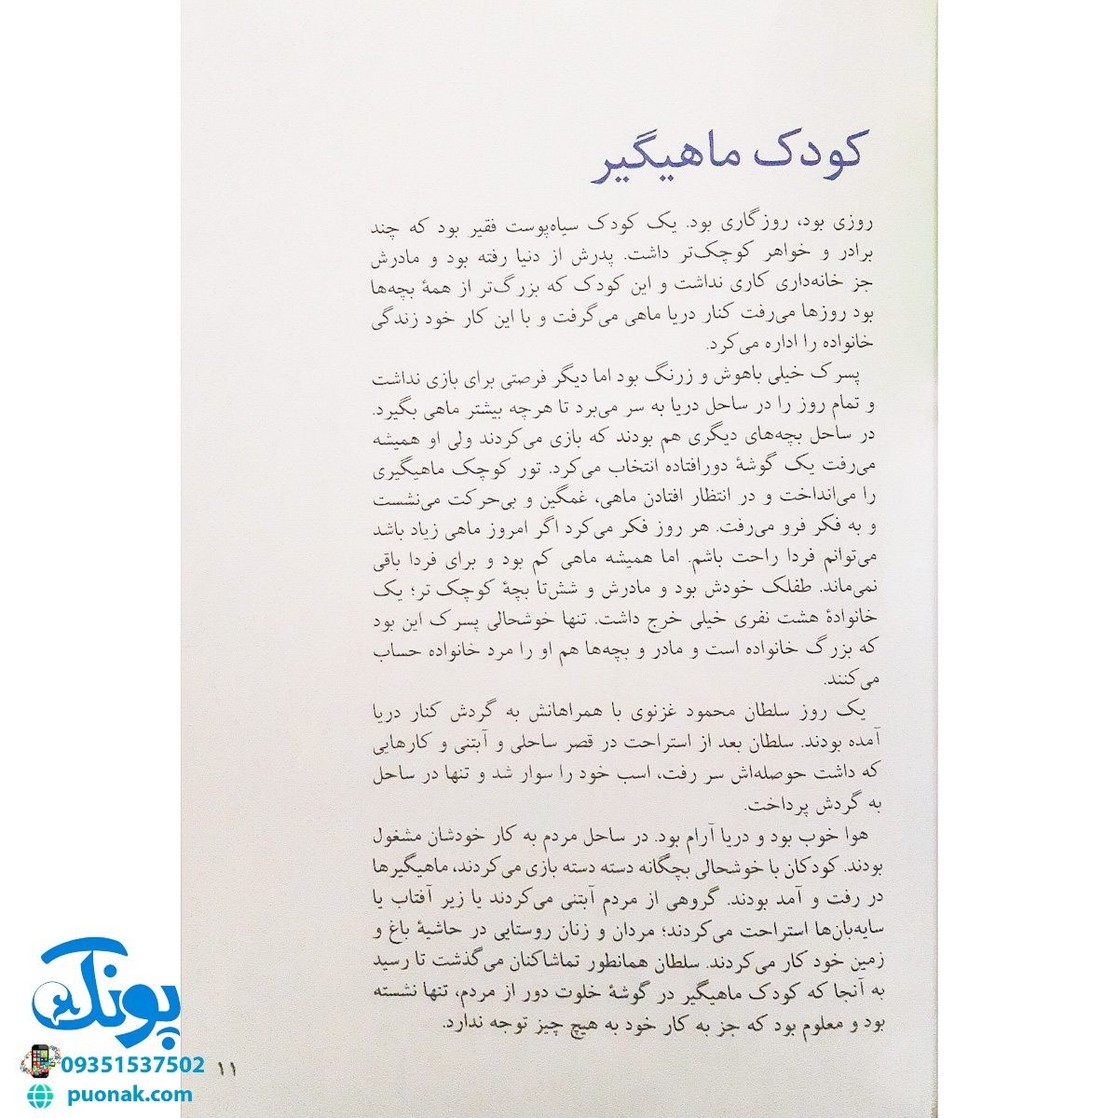 کودک ماهیگیر
روزی بود، روزگاری بود. یک کودک سیاه‌پوست فقیر بود که چند
برادر و خواهر کوچک‌تر داشت. پدرش از دنیا رفته بود و مادرش
جز خانه‌داری کاری نداشت و این کودک که بزرگ‌تر از همهٔ بچه‌ها
بود روزها می‌رفت کنار دریا ماهی می‌گرفت و با این کار خود زندگی
خانواده را اداره می‌کرد.
پسرک خیلی باهوش و زرنگ بود اما دیگر فرصتی برای بازی نداشت
و تمام روز را در ساحل دریا به سر می‌برد تا هرچه بیشتر ماهی بگیرد.
در ساحل بچه‌های دیگری هم بودند که بازی می‌کردند ولی او همیشه
می‌رفت یک گوشهٔ دورافتاده انتخاب می‌کرد. تور کوچک ماهیگیری
را می‌انداخت و در انتظار افتادن ماهی، غمگین و بی‌حرکت می‌نشست
و به فکر فرو می‌رفت. هر روز فکر می‌کرد اگر امروز ماهی زیاد باشد
می‌توانم فردا راحت باشم. اما همیشه ماهی کم بود و برای فردا باقی
نمی‌ماند. طفلک خودش بود و مادرش و شش‌تا بچهٔ کوچک تر؛ یک
خانوادهٔ هشت نفری خیلی خرج داشت. تنها خوشحالی پسرک این بود
که بزرگ خانواده است و مادر و بچه‌ها هم او را مرد خانواده حساب
می‌کنند.
یک روز سلطان محمود غزنوی با همراهانش به گردش کنار دریا
آمده بودند. سلطان بعد از استراحت در قصر ساحلی و آبتنی و کارهایی
که داشت حوصله‌اش سر رفت، اسب خود را سوار شد و تنها در ساحل
به گردش پرداخت.
هوا خوب بود و دریا آرام بود. در ساحل مردم به کار خودشان مشغول
بودند. کودکان با خوشحالی بچگانه دسته دسته بازی می‌کردند، ماهیگیرها
در رفت و آمد بودند. گروهی از مردم آبتنی می‌کردند یا زیر آفتاب یا
سایه‌بان‌ها استراحت می‌کردند؛ مردان و زنان روستایی در حاشیهٔ باغ و
زمین خود کار می‌کردند. سلطان همانطور تماشاکنان می‌گذشت تا رسید
به آنجا که کودک ماهیگیر در گوشهٔ خلوت دور از مردم، تنها نشسته
بود و معلوم بود که جز به کار خود به هیچ چیز توجه ندارد.
۱۱
پونک
09351537502
puonak.com